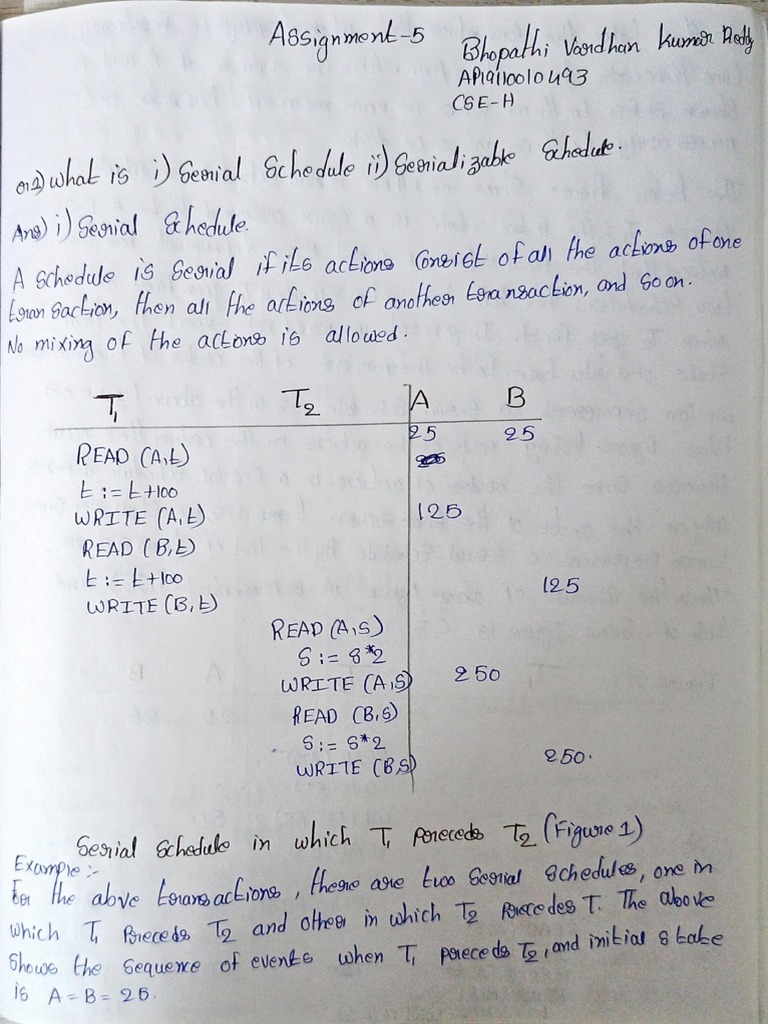 Assignment-5
Bhopathi Vardhan Kumar Reddy
AP19110010493
CSE-H
Q1) What is i) Serial Schedule ii) Serializable Schedule.
Ans) i) Serial Schedule.
A schedule is serial if its actions consist of all the actions of one
transaction, then all the actions of another transaction, and so on.
No mixing of the actions is allowed.
T1 T2 A B
25 25
READ (A,t)
t := t+100
WRITE (A,t) 125
READ (B,t)
t := t+100
WRITE (B,t) 125
READ (A,S)
S := S*2
WRITE (A,S) 250
READ (B,S)
S := S*2
WRITE (B,S) 250.
Serial Schedule in which T1 precedes T2 (Figure 1)
Example :-
For the above transactions, there are two serial schedules, one in
which T1 Precedes T2 and other in which T2 Precedes T. The above
shows the sequence of events when T1 precedes T2, and initial state
is A = B = 25.